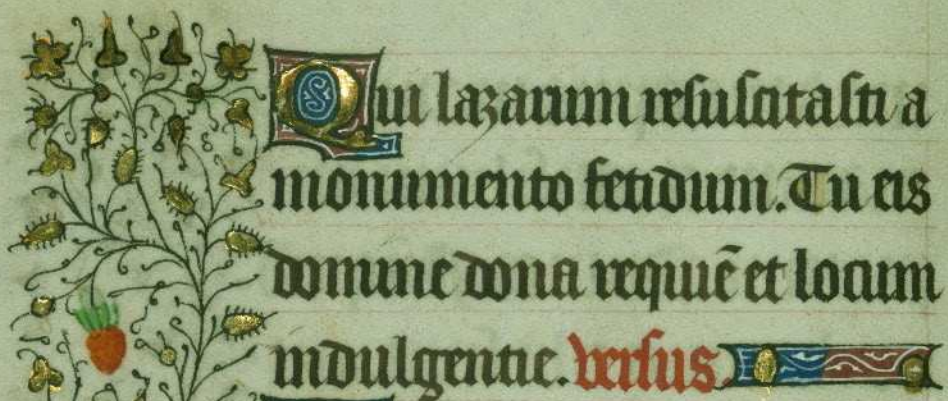 Qui lazarum resuscitasti a
monumento fetidum. Tu eis
domine dona requiē et locum
indulgentie. versus.